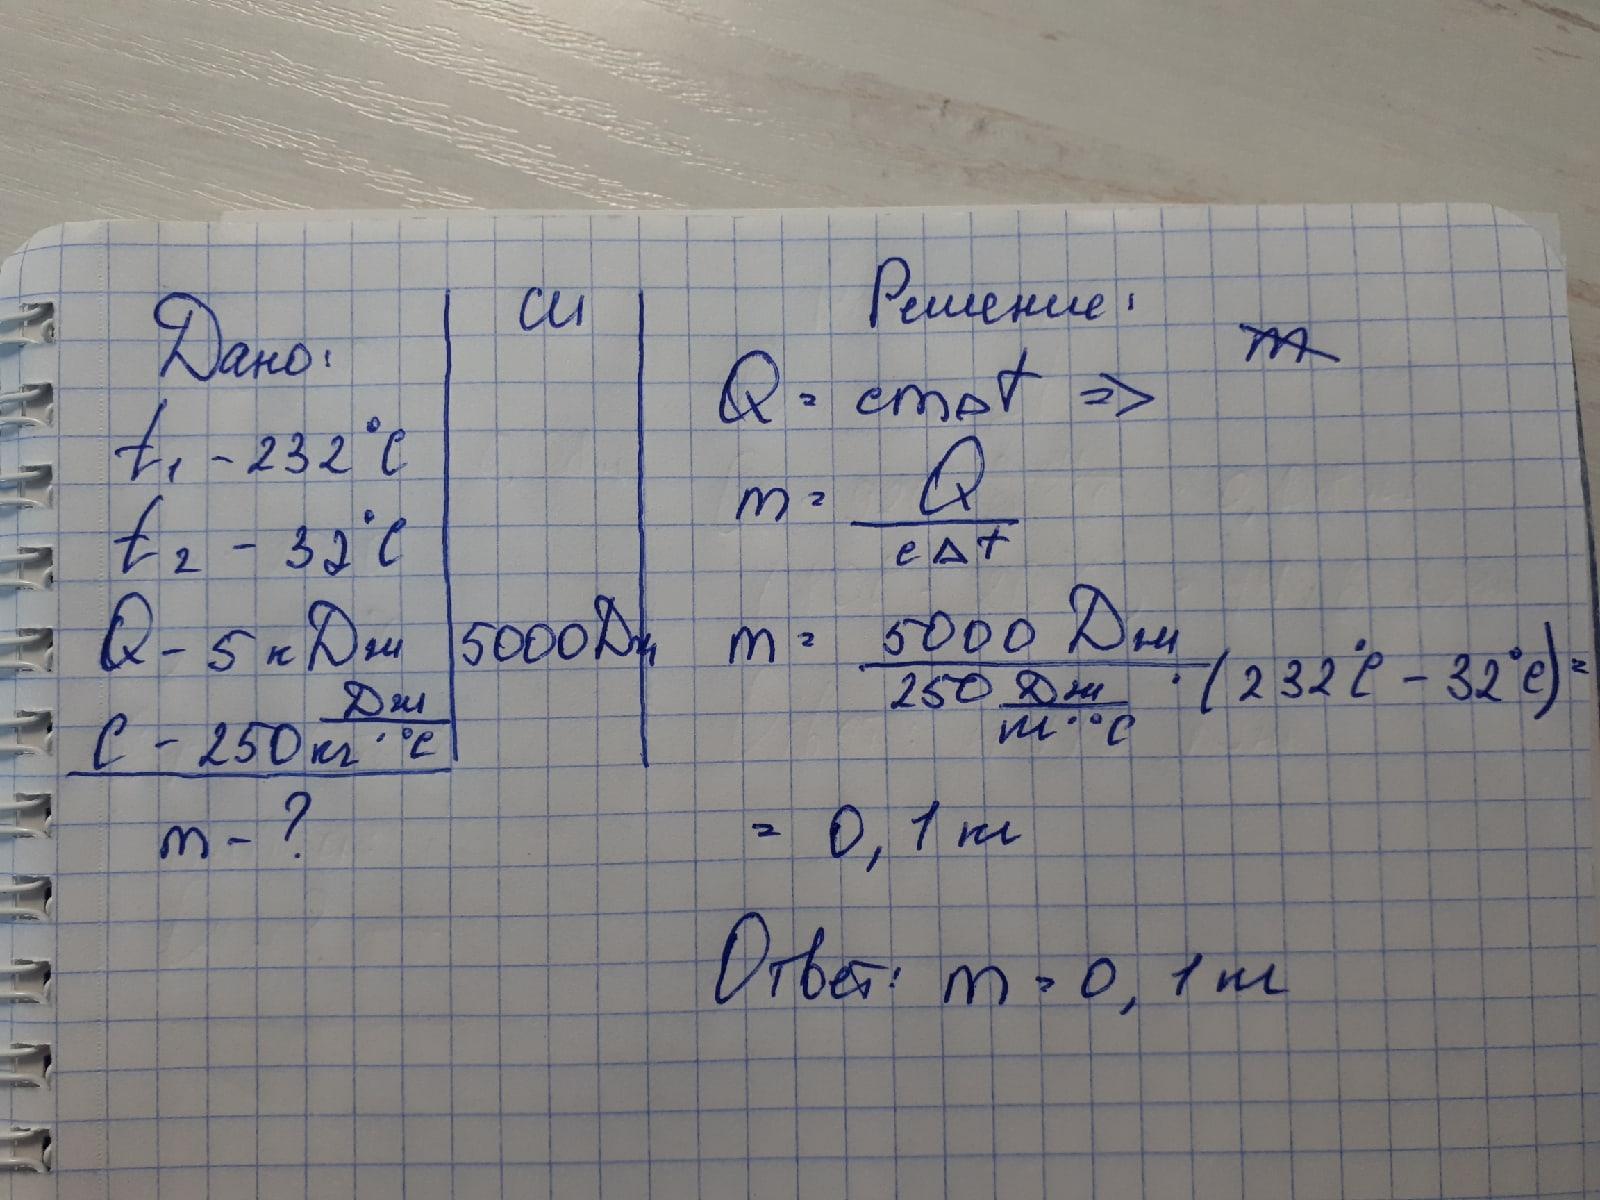 Дано:
t₁ - 232°C
t₂ - 32°C
Q - 5 кДж
C - 250 Дж/кг·°C
m - ?
СИ
5000Дж
Решение:
m
Q = cmΔt =>
m = Q/cΔt
m = 5000 Дж/250 Дж/кг·°C · (232°C - 32°C) =
= 0,1 кг
Ответ: m = 0,1 кг